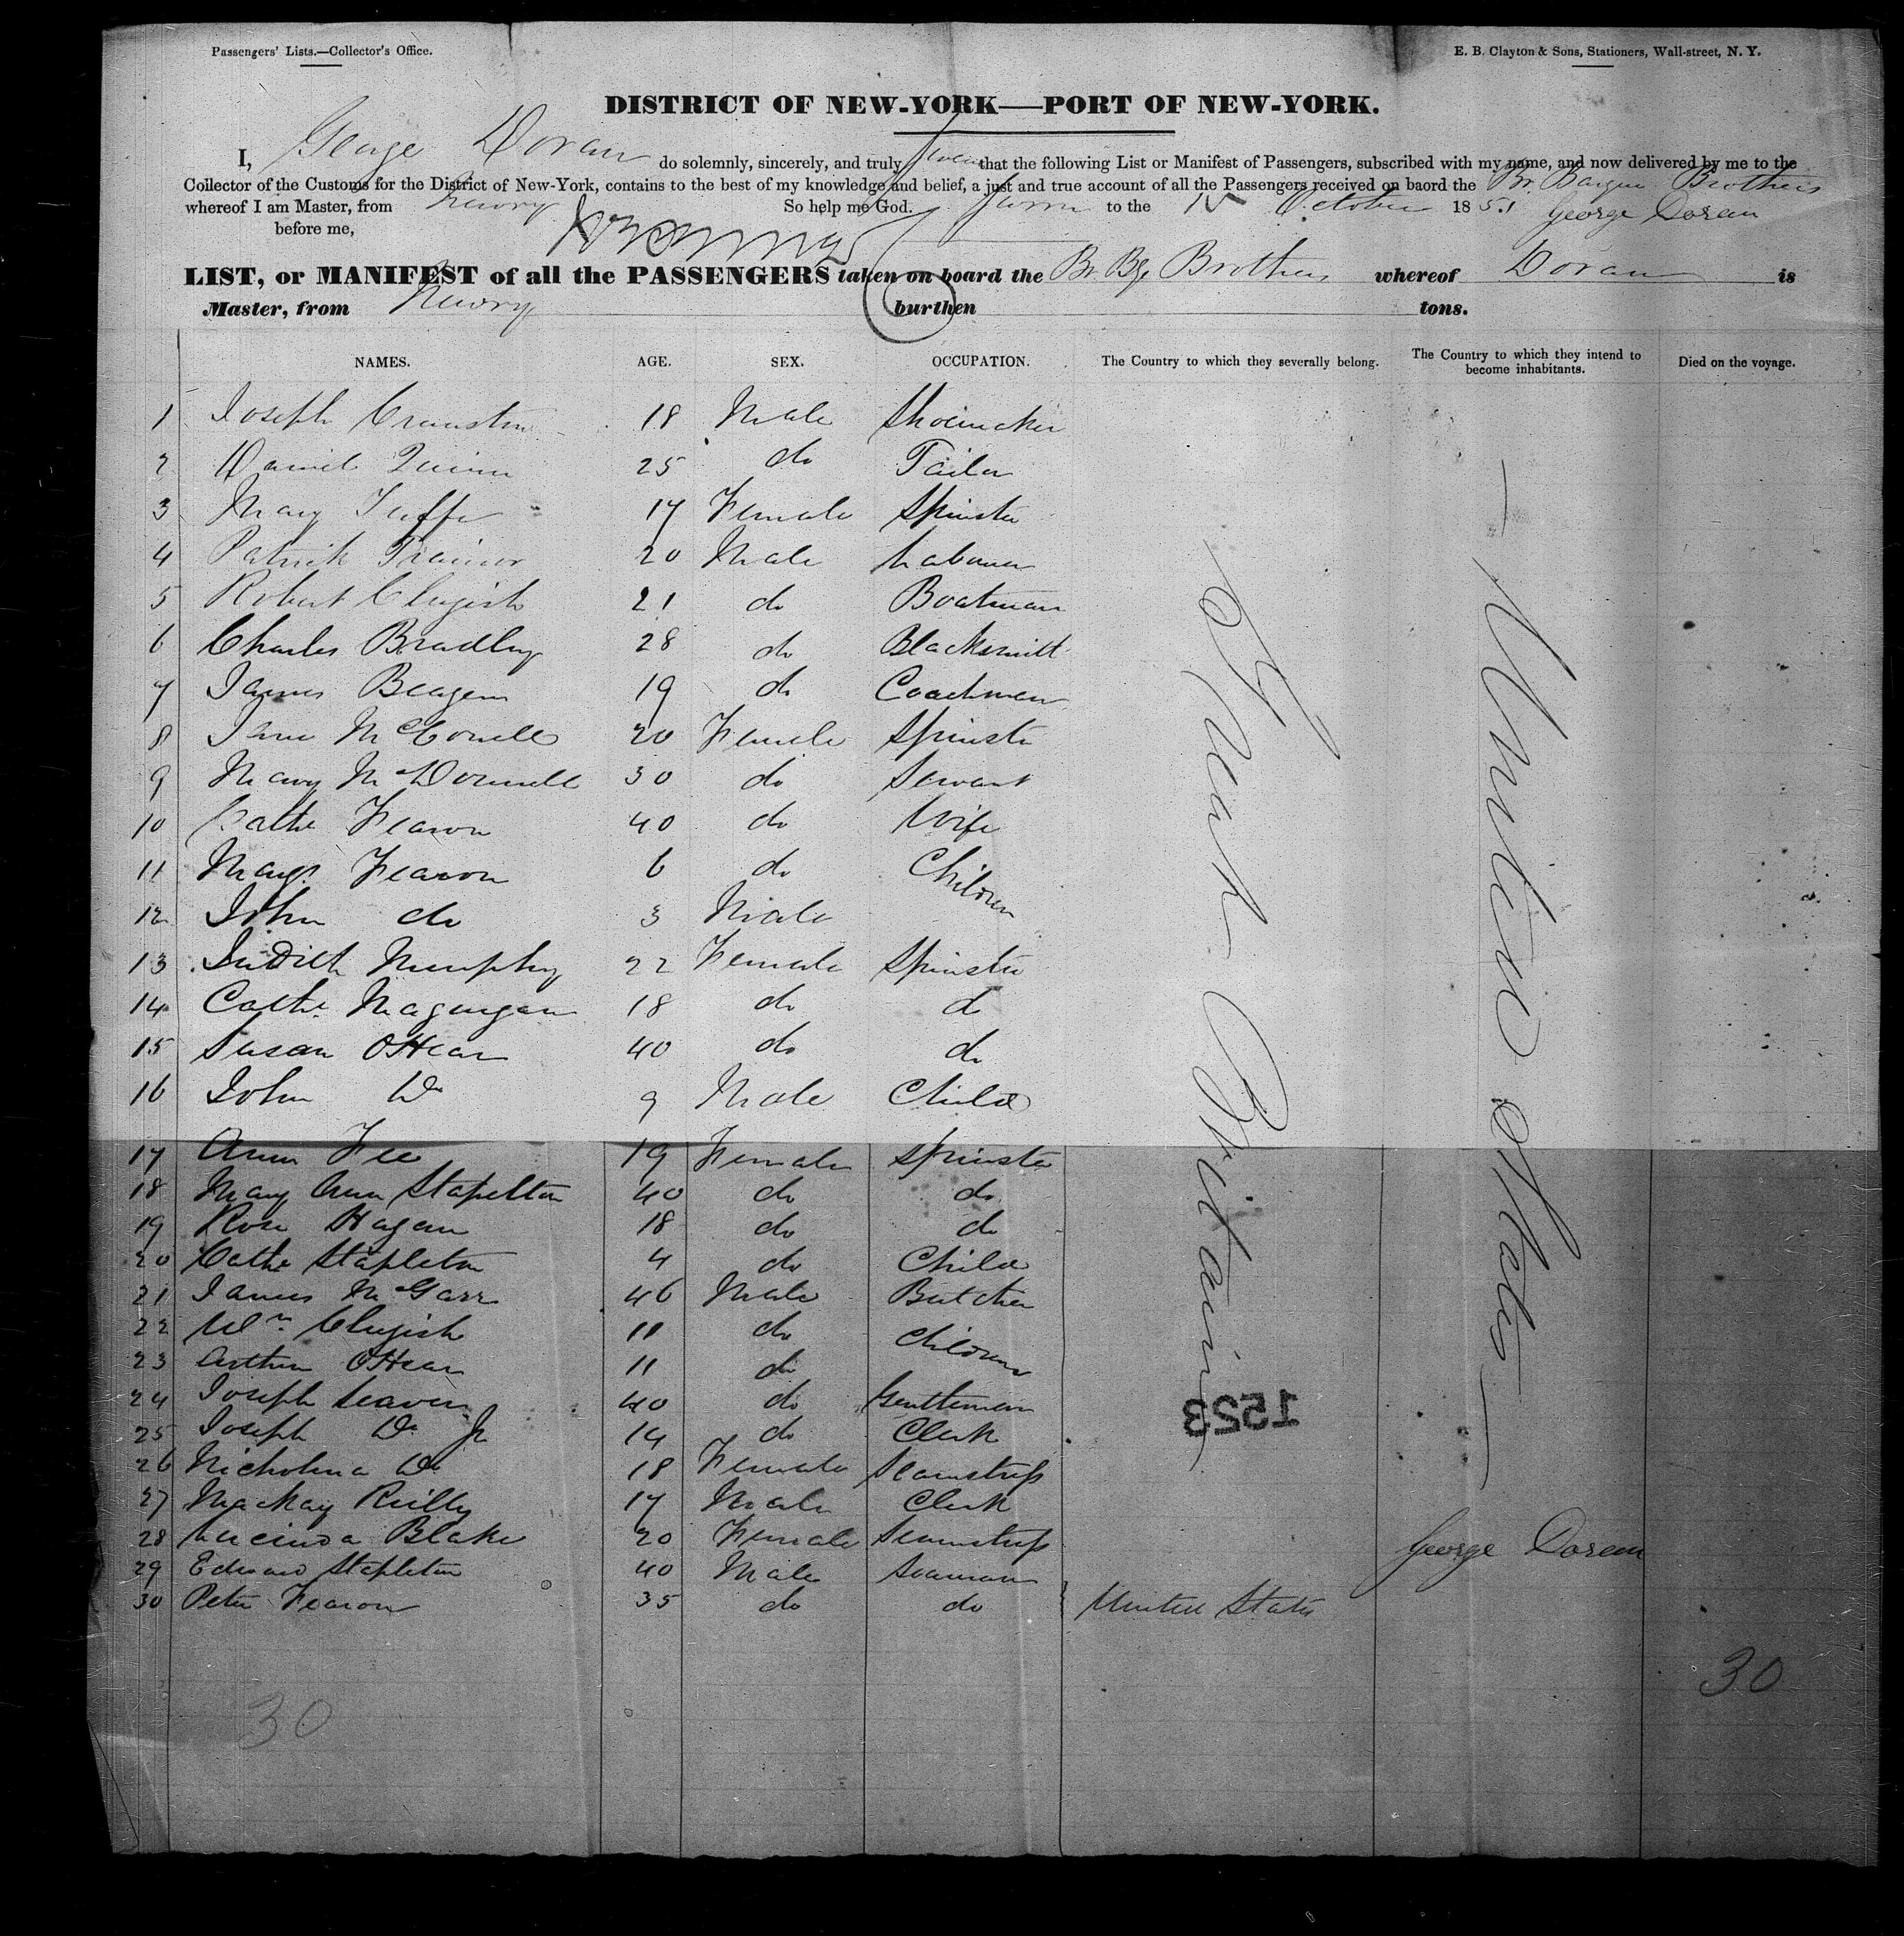 Passengers' Lists.—Collector's Office. E. B. Clayton & Sons, Stationers, Wall-street, N. Y.
DISTRICT OF NEW-YORK—PORT OF NEW-YORK.
I, George Doran do solemnly, sincerely, and truly swear that the following List or Manifest of Passengers, subscribed with my name, and now delivered by me to the
Collector of the Customs for the District of New-York, contains to the best of my knowledge and belief, a just and true account of all the Passengers received on baord the Br. Barque Brothers
whereof I am Master, from Newry So help me God. Sworn to the 15 October 1851 George Doran
before me,
LIST, or MANIFEST of all the PASSENGERS taken on board the Br. Bge Brothers whereof Doran is
Master, from Newry burthen tons.
NAMES. AGE. SEX. OCCUPATION. The Country to which they severally belong. The Country to which they intend to become inhabitants. Died on the voyage.
1 Joseph Cranston 18 Male Shoemaker
2 Daniel Quinn 25 do Tailor
3 Mary Tuffe 17 Female Spinster
4 Patrick Trainor 20 Male Labourer
5 Robert Clugish 21 do Boatman
6 Charles Bradley 28 do Blacksmith
7 James Beagen 19 do Coachman
8 Jane McConell 20 Female Spinster
9 Mary McDonnell 30 do Servant
10 Cathe Fearon 40 do Wife
11 Margt Fearon 6 do Children
12 John do 3 Male
13 Judith Murphy 22 Female Spinster
14 Cathe Magurgan 18 do do
15 Susan OHear 40 do do
16 John Do 9 Male Child
17 Ann Fee 19 Female Spinster
18 Mary Ann Stapelton 40 do do
19 Rose Hagan 18 do do
20 Cathe Stapleton 4 do Child
21 James McGarr 46 Male Butcher
22 Wm Clugish 11 do Children
23 Arthur OHear 11 do
24 Joseph Seaver 40 do Gentleman
25 Joseph Do Jr 19 do Clerk
26 Nicholina Do 18 Female Seamstress
27 Mackay Reilly 17 Male Clerk
28 Lucinda Blake 20 Female Seamstress
29 Edward Stapleton 40 Male Seaman
30 Peter Fearon 35 do do United States
Great Britain
United States
1523
George Doran
30
30